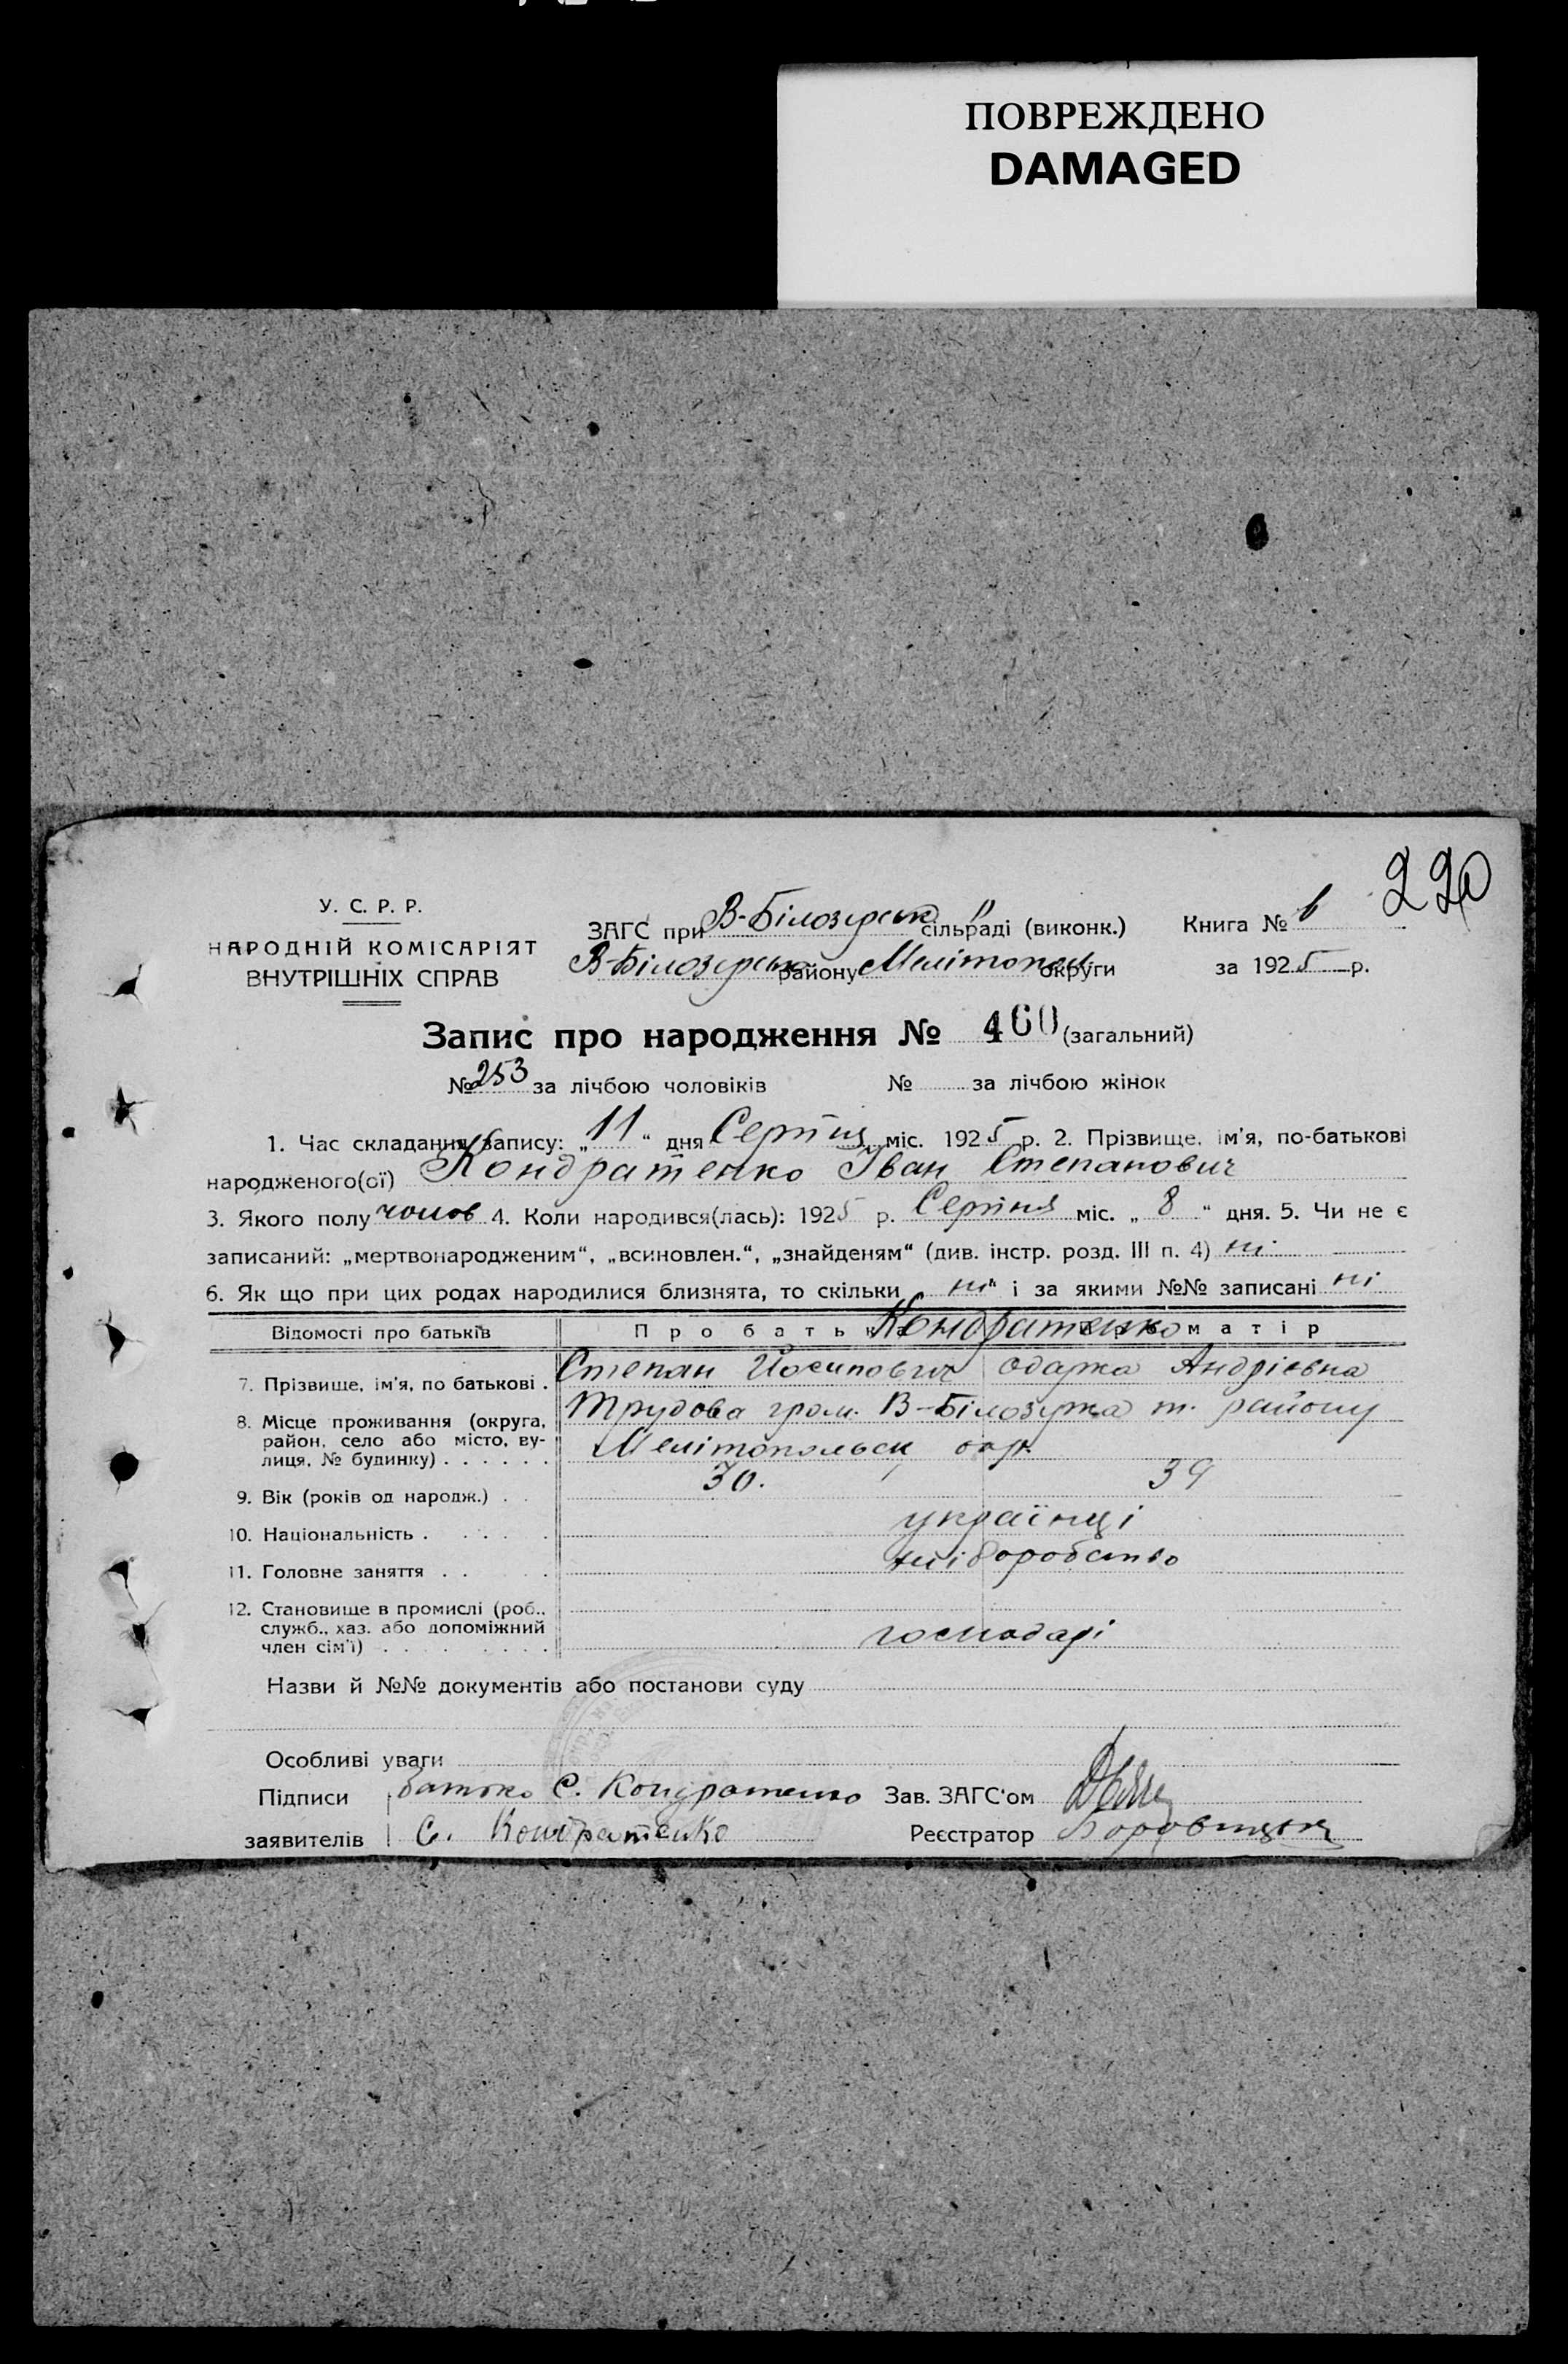 ПОВРЕЖДЕНО
DAMAGED
220
У. С. Р. Р.
НАРОДНІЙ КОМІСАРІЯТ
ВНУТРІШНІХ СПРАВ
ЗАГС при В-Білозерськ сільраді (виконк.)
В-Білозерськ району Мелітопол округи
Книга №
за 1925 р.
Запис про народження № 460 (загальний)
№ 253 за лічбою чоловіків № за лічбою жінок
1. Час складання запису: „11“ дня Серпня міс. 1925 р. 2. Прізвище, ім'я, по-батькові
народженого(ої) Кондратенко Іван Степанович
3. Якого полу чолов 4. Коли народився(лась): 1925 р. Серпня міс. „8“ дня. 5. Чи не є
записаний: „мертвонародженим“, „всиновлен.“, „знайденям“ (див. інстр. розд. III п. 4) ні
6. Як що при цих родах народилися близнята, то скільки ні і за якими №№ записані ні
Відомості про батьків Про батька Кондратенко Про матір
7. Прізвище, ім'я, по батькові . Степан Йосипович Одарка Андріевна
8. Місце проживання (округа, район, село або місто, вулиця, № будинку) . . . . . . Трудова гром. В-Білозерка т. району
Мелітопольск окр.
9. Вік (років од народж.) . . 30. 39
10. Національність . . . . . українці
11. Головне заняття . . . хліборобство
12. Становище в промислі (роб.,
служб., хаз. або допоміжний
член сім'ї) . . . . . . . господарі
Назви й №№ документів або постанови суду
Особливі уваги
Підписи Батько С. Кондратенко Зав. ЗАГС'ом
заявителів С. Кондратенко Реєстратор